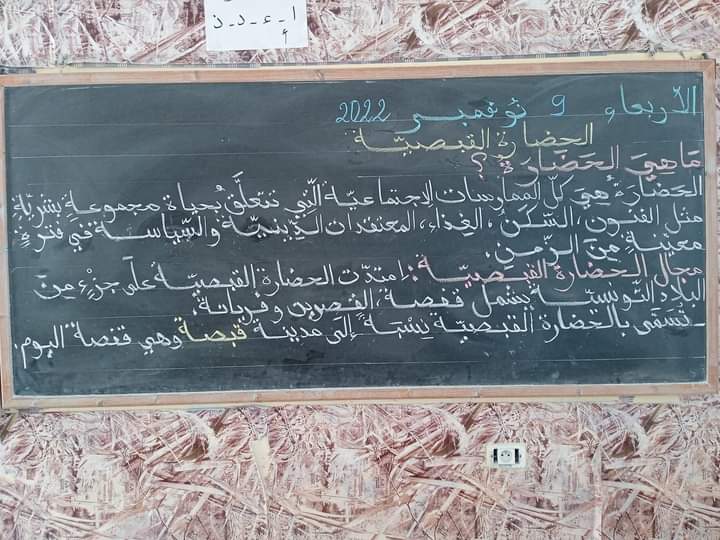 أ - ء - د - ذ
الأربعاء 9 نوفمبر 2022
الحضارة القبصيّة
مَا هِيَ الحَضَارَةُ ؟
الحَضَارَةُ هِيَ كلّ الممارسات الاجتماعيّة الّتي تتعلّق بحياة مجموعةٍ بشريّةٍ
مثل الفنون، السّكن، الغِذاء، المعتقدات الدّينيّة والسّياسة في فترةٍ
معيّنة مِنَ الزّمنِ.
مجال الحضارة القبصيّة : امتدّت الحضارة القبصيّة على جزْءٍ مِنَ
البلاد التّونسيّة يشمل قفصة، القصرين وفريانة.
- تُسَمَّى بالحضارة القبصيّة نِسْبَةً إلَى مدينة قبصة وهي قفصة اليوم.